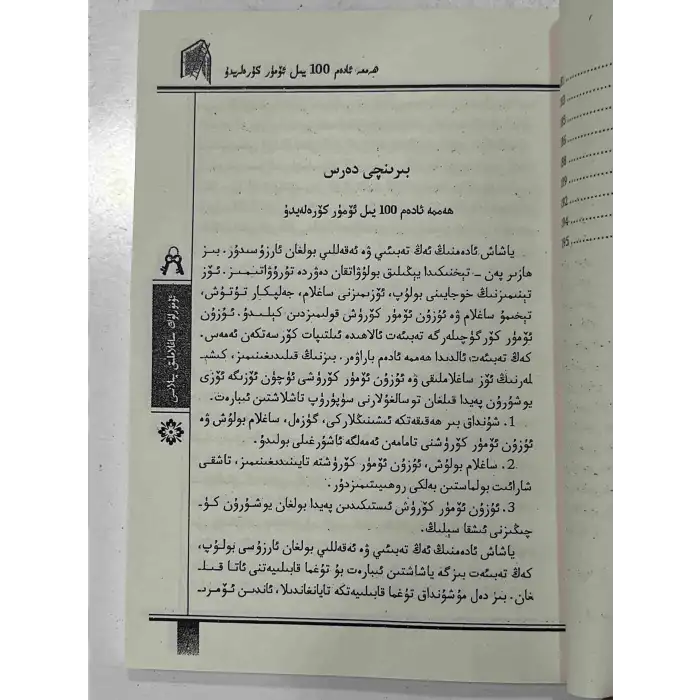 ھەممە ئادەم 100 يىل ئۆمۈر كۆرەلەيدۇ
بىرىنچى دەرس
ھەممە ئادەم 100 يىل ئۆمۈر كۆرەلەيدۇ
ياشاش ئادەمنىڭ ئەڭ تەبىئىي ۋە ئەقەللىي بولغان ئارزۇسىدۇر. بىز
ھازىر پەن ـ تېخنىكىدا يېڭىلىق بولۇۋاتقان دەۋردە تۇرۇۋاتىمىز. ئۆز
تېنىمىزنىڭ خوجايىنى بولۇپ، ئۆزىمىزنى ساغلام، جەلپكار تۇتۇش،
تېخىمۇ ساغلام ۋە ئۇزۇن ئۆمۈر كۆرۈش قولىمىزدىن كېلىدۇ. ئۇزۇن
ئۆمۈر كۆرگۈچىلەرگە تەبىئەت ئالاھىدە ئىلتىپات كۆرسەتكەن ئەمەس.
كەڭ تەبىئەت ئالدىدا ھەممە ئادەم باراۋەر. بىزنىڭ قىلىدىغىنىمىز، كىشىـ
لەرنىڭ ئۆز ساغلاملىقى ۋە ئۇزۇن ئۆمۈر كۆرۈشى ئۈچۈن ئۆزىگە ئۆزى
يوشۇرۇن پەيدا قىلغان توسالغۇلارنى سۈپۈرۈپ تاشلاشتىن ئىبارەت.
1. شۇنداق بىر ھەقىقەتكە ئىشىنىڭلاركى، گۈزەل، ساغلام بولۇش ۋە
ئۇزۇن ئۆمۈر كۆرۈشنى تامامەن ئەمەلگە ئاشۇرغىلى بولىدۇ.
2. ساغلام بولۇش، ئۇزۇن ئۆمۈر كۆرۈشتە تايىنىدىغىنىمىز، تاشقى
شارائىت بولماستىن بەلكى روھىيىتىمىزدۇر.
3. ئۇزۇن ئۆمۈر كۆرۈش ئىستىكىدىن پەيدا بولغان يوشۇرۇن كۈـ
چىڭىزنى ئىشقا سېلىڭ.
ياشاش ئادەمنىڭ ئەڭ تەبىئىي ۋە ئەقەللىي بولغان ئارزۇسى بولۇپ،
كەڭ تەبىئەت بىزگە ياشاشتىن ئىبارەت بۇ تۇغما قابىلىيەتنى ئاتا قىلـ
غان. بىز دەل مۇشۇنداق تۇغما قابىلىيەتكە تايانغاندىلا، ئاندىن ئۆمرىـ
ئۆمۈرلۈك ساغلاملىق
193
195